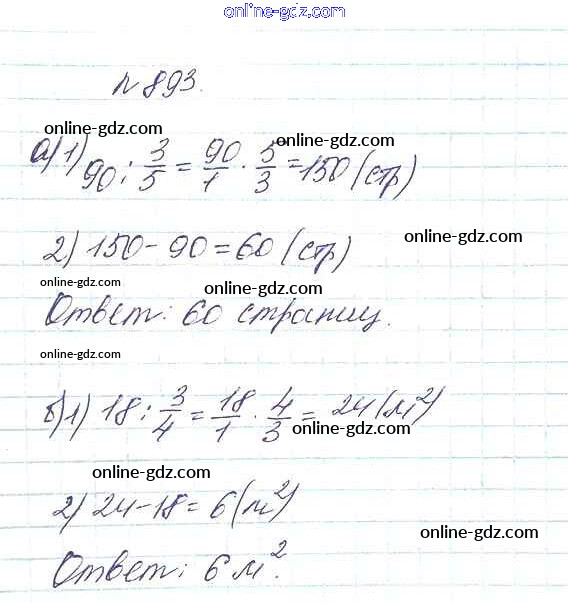 online-gdz.com
№893.
online-gdz.com
а) 1) 90 : 3/5 = 90/1 · 5/3 = 150 (стр)
online-gdz.com
2) 150 - 90 = 60 (стр)
online-gdz.com
online-gdz.com
online-gdz.com
Ответ: 60 страниц.
online-gdz.com
б) 1) 18 : 3/4 = 18/1 · 4/3 = 24 (м²)
online-gdz.com
online-gdz.com
2) 24 - 18 = 6 (м²)
online-gdz.com
Ответ: 6 м².